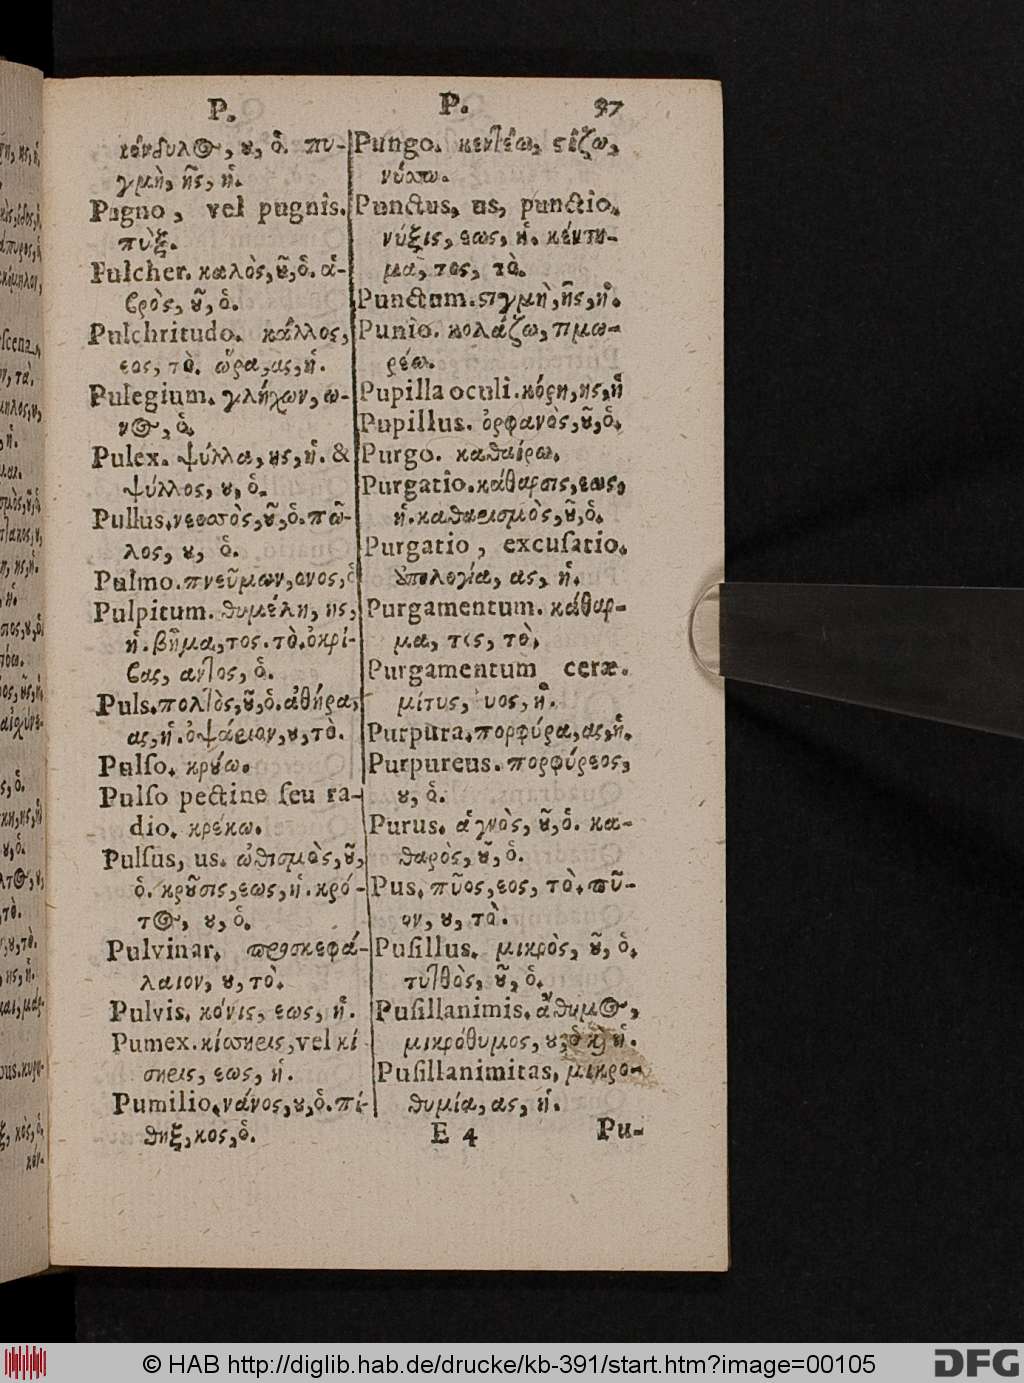 P.
κόνδυλος, ου, ὁ. πυ-
γμὴ, ῆς, ἡ.
Pugno, vel pugnis.
πὺξ.
Pulcher. καλὸς, οῦ, ὁ. ἁ-
βρὸς, οῦ, ὁ.
Pulchritudo. κάλλος,
εος, τὸ. ὥρα, ας, ἡ.
Pulegium. γλήχων, ω-
νος, ὁ.
Pulex. ψύλλα, ης, ἡ. &
ψύλλος, ου, ὁ.
Pullus. νεοσσὸς, οῦ, ὁ. πῶ-
λος, ου, ὁ.
Pulmo. πνεῦμων, ονος, ὁ
Pulpitum. θυμέλη, ης,
ἡ. βῆμα, τος. τὸ. ὀκρί-
βας, αντος, ὁ.
Puls. πολτὸς, οῦ, ὁ. ἀθήρα,
ας, ἡ. ὀψάριον, ου, τὸ.
Pulſo. κρούω.
Pulſo pectine ſeu ra-
dio. κρέκω.
Pulſus, us. ὠθισμὸς, οῦ,
ὁ. κροῦσις, εως, ἡ. κρό-
τος, ου, ὁ.
Pulvinar. προσκεφά-
λαιον, ου, τὸ.
Pulvis. κόνις, εως, ἡ.
Pumex. κίσσηρις, vel κί
σηρις, εως, ἡ.
Pumilio. νάνος, ου, ὁ. πί-
θηξ, κος, ὁ.
P. 97
Pungo. κεντέω, στίζω,
νύττω.
Punctus, us, punctio.
νύξις, εως, ἡ. κέντη-
μα, τος, τὸ.
Punctum. στιγμὴ, ῆς, ἡ.
Punio. κολάζω, τιμω-
ρέω.
Pupilla oculi. κόρη, ης, ἡ
Pupillus. ὀρφανὸς, οῦ, ὁ.
Purgo. καθαίρω.
Purgatio. κάθαρσις, εως,
ἡ. καθαρισμὸς, οῦ, ὁ.
Purgatio, excuſatio.
ἀπολογία, ας, ἡ.
Purgamentum. κάθαρ-
μα, τος, τὸ.
Purgamentum ceræ.
μίτυς, υος, ἡ.
Purpura. πορφύρα, ας, ἡ.
Purpureus. πορφύρεος,
ου, ὁ.
Purus. ἁγνὸς, οῦ, ὁ. κα-
θαρὸς, οῦ, ὁ.
Pus. πῦος, εος, τὸ. πῦ-
ον, ου, τὸ.
Puſillus. μικρὸς, οῦ, ὁ.
τυτθὸς, οῦ, ὁ.
Puſillanimis. ἄθυμος,
μικρόθυμος, ου, ὁ καὶ ἡ.
Puſillanimitas. μικρο-
θυμία, ας, ἡ.
E 4 Pu-
© HAB http://diglib.hab.de/drucke/kb-391/start.htm?image=00105
DFG